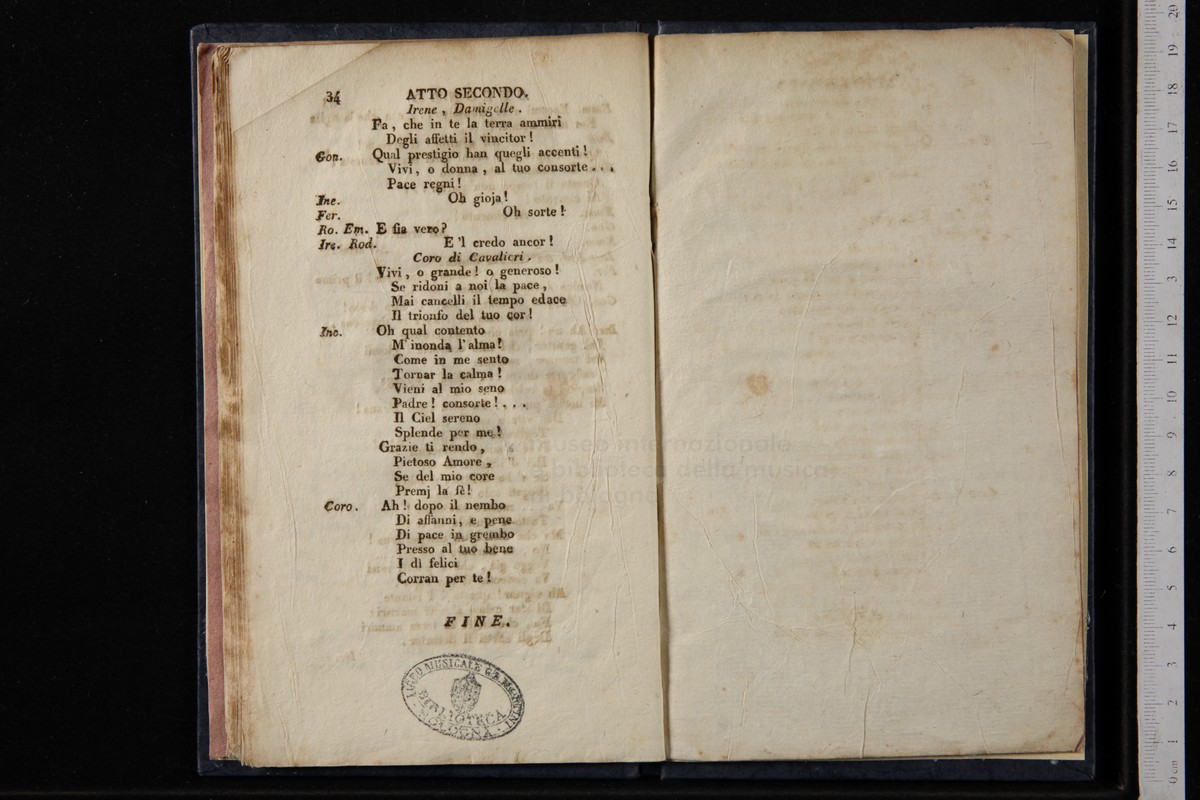 34 ATTO SECONDO.
Irene, Damigelle.
Fa, che in te la terra ammiri
Degli affetti il vincitor!
Gon. Qual prestigio han quegli accenti!
Vivi, o donna, al tuo consorte...
Pace regni!
Ine. Oh gioja!
Fer. Oh sorte!
Ro. Em. E fia vero?
Ire. Rod. E 'l credo ancor!
Coro di Cavalieri.
Vivi, o grande! o generoso!
Se ridoni a noi la pace,
Mai cancelli il tempo edace
Il trionfo del tuo cor!
Ine. Oh qual contento
M' inonda l' alma!
Come in me sento
Tornar la calma!
Vieni al mio seno
Padre! consorte!...
Il Ciel sereno
Splende per me!
Grazie ti rendo,
Pietoso Amore,
Se del mio core
Premj la fè!
Coro. Ah! dopo il nembo
Di affanni, e pene
Di pace in grembo
Presso al tuo bene
I dì felici
Corran per te!
FINE.
LICEO MUSICALE G.B. MARTINI
BIBLIOTECA
BOLOGNA
museo internazionale
e biblioteca della musica
di bologna
0 cm 1 2 3 4 5 6 7 8 9 10 11 12 13 14 15 16 17 18 19 20